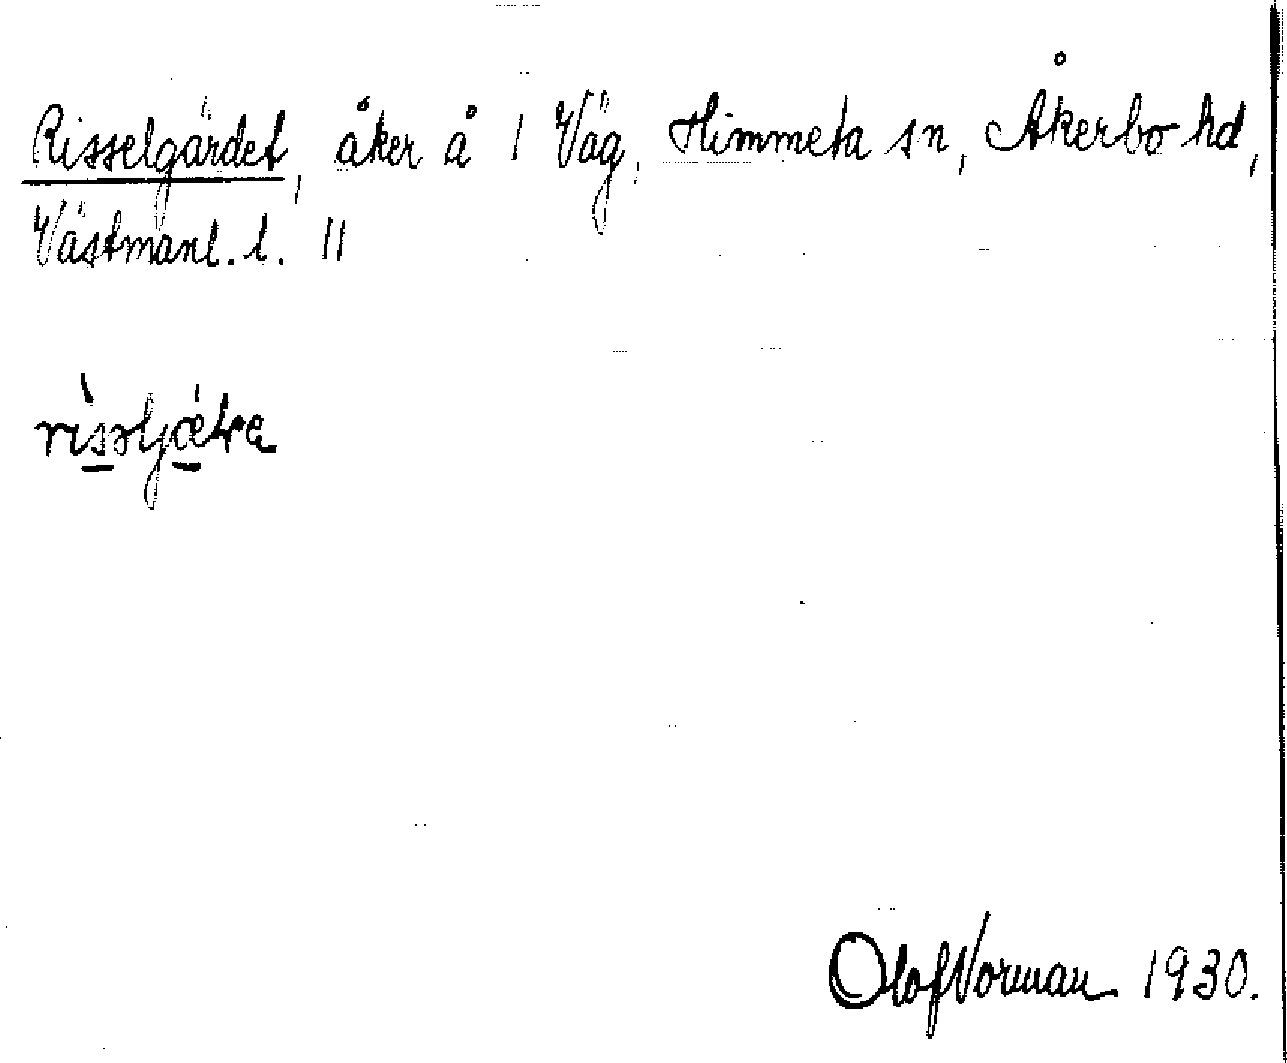 Risselgärdet, åker å 1 Väg, Himmeta sn, Åkerbo hd,
Västmanl. l. 11
Olof Norman 1930.